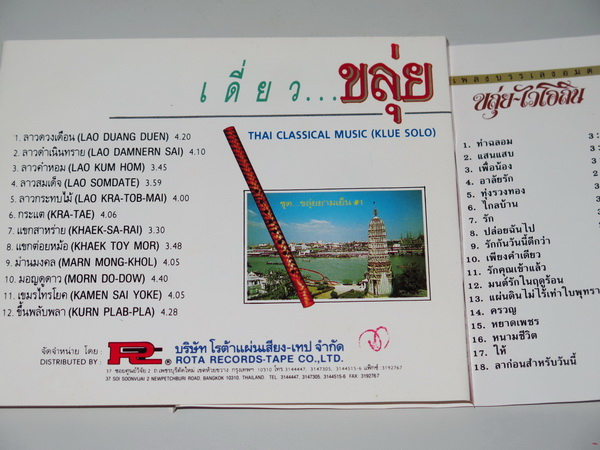 เดี่ยว...ขลุ่ย
THAI CLASSICAL MUSIC (KLUE SOLO)
1. ลาวดวงเดือน (LAO DUANG DUEN) 4.20
2. ลาวดำเนินทราย (LAO DAMNERN SAI) 4.10
3. ลาวคำหอม (LAO KUM HOM) 3.45
4. ลาวสมเด็จ (LAO SOMDATE) 3.59
5. ลาวกระทบไม้ (LAO KRA-TOB-MAI) 4.00
6. กระแต (KRA-TAE) 4.06
7. แขกสาหร่าย (KHAEK-SA-RAI) 3.30
8. แขกต่อยหม้อ (KHAEK TOY MOR) 3.48
9. ม่านมงคล (MARN MONG-KHOL) 4.05
10. มอญดูดาว (MORN DO-DOW) 4.40
11. เขมรไทรโยค (KAMEN SAI YOKE) 4.05
12. ขึ้นพลับพลา (KURN PLAB-PLA) 4.28
ชุด...ขลุ่ยยามเย็น #1
จัดจำหน่าย โดย :
DISTRIBUTED BY :
R
บริษัท โรต้าแผ่นเสียง-เทป จำกัด
ROTA RECORDS-TAPE CO.,LTD.
37 ซอยศูนย์วิจัย 2 ถ.เพชรบุรีตัดใหม่ เขตห้วยขวาง กรุงเทพฯ 10310 โทร.3144447, 3147305, 3144515-6 แฟ็กซ์ 3192767
37 SOI SOONVIJAI 2 NEWPETCHBURI ROAD, BANGKOK 10310, THAILAND. TEL. 3144447, 3147305, 3144515-6 FAX: 3192767
เพลงบรรเลงอมต
ขลุ่ย-ไวโอลิน
1. ท่าฉลอม 3:
2. แสนแสบ
3. เพื่อน้อง
4. อาลัยรัก
5. ทุ่งรวงทอง
6. ไกลบ้าน
7. รัก
8. ปล่อยฉันไป
9. รักกันวันนี้ดีกว่า
10. เพียงคำเดียว
11. รักคุณเข้าแล้ว
12. มนต์รักในฤดูร้อน
13. แผ่นดินไม่ไร้เท่าใบพุทรา
14. ครวญ
15. หยาดเพชร
16. หนามชีวิต
17. ให้
18. ลาก่อนสำหรับวันนี้